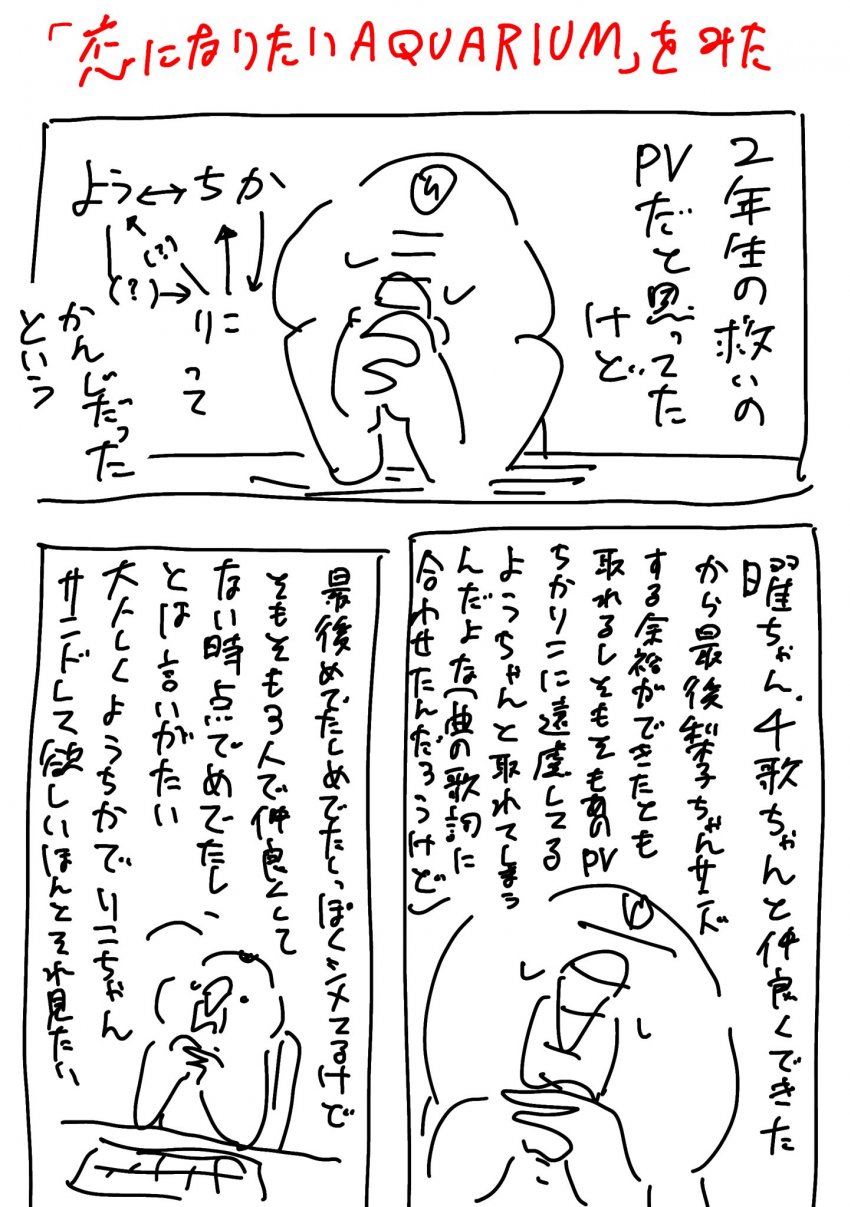 「恋になりたいAQUARIUM」をみた
2年生の救いの
PVだと思ってた
けど
よう↔ちか
(?)
(?)→りこ
って
かんじだった
という
曜ちゃん、千歌ちゃんと仲良くできた
から最後梨子ちゃんサンド
する余裕ができたとも
取れるしそもそもあのPV
ちかりこに遠慮してる
ようちゃんと取れてしまう
んだよな(曲の歌詞に
合わせたんだろうけど)
最後めでたしめでたしっぽくシメてるけど
そもそも3人で仲良くして
ない時点でめでたし
とは言いがたい
大人しくようちかでりこちゃん
サンドして欲しいほんとそれ見たい